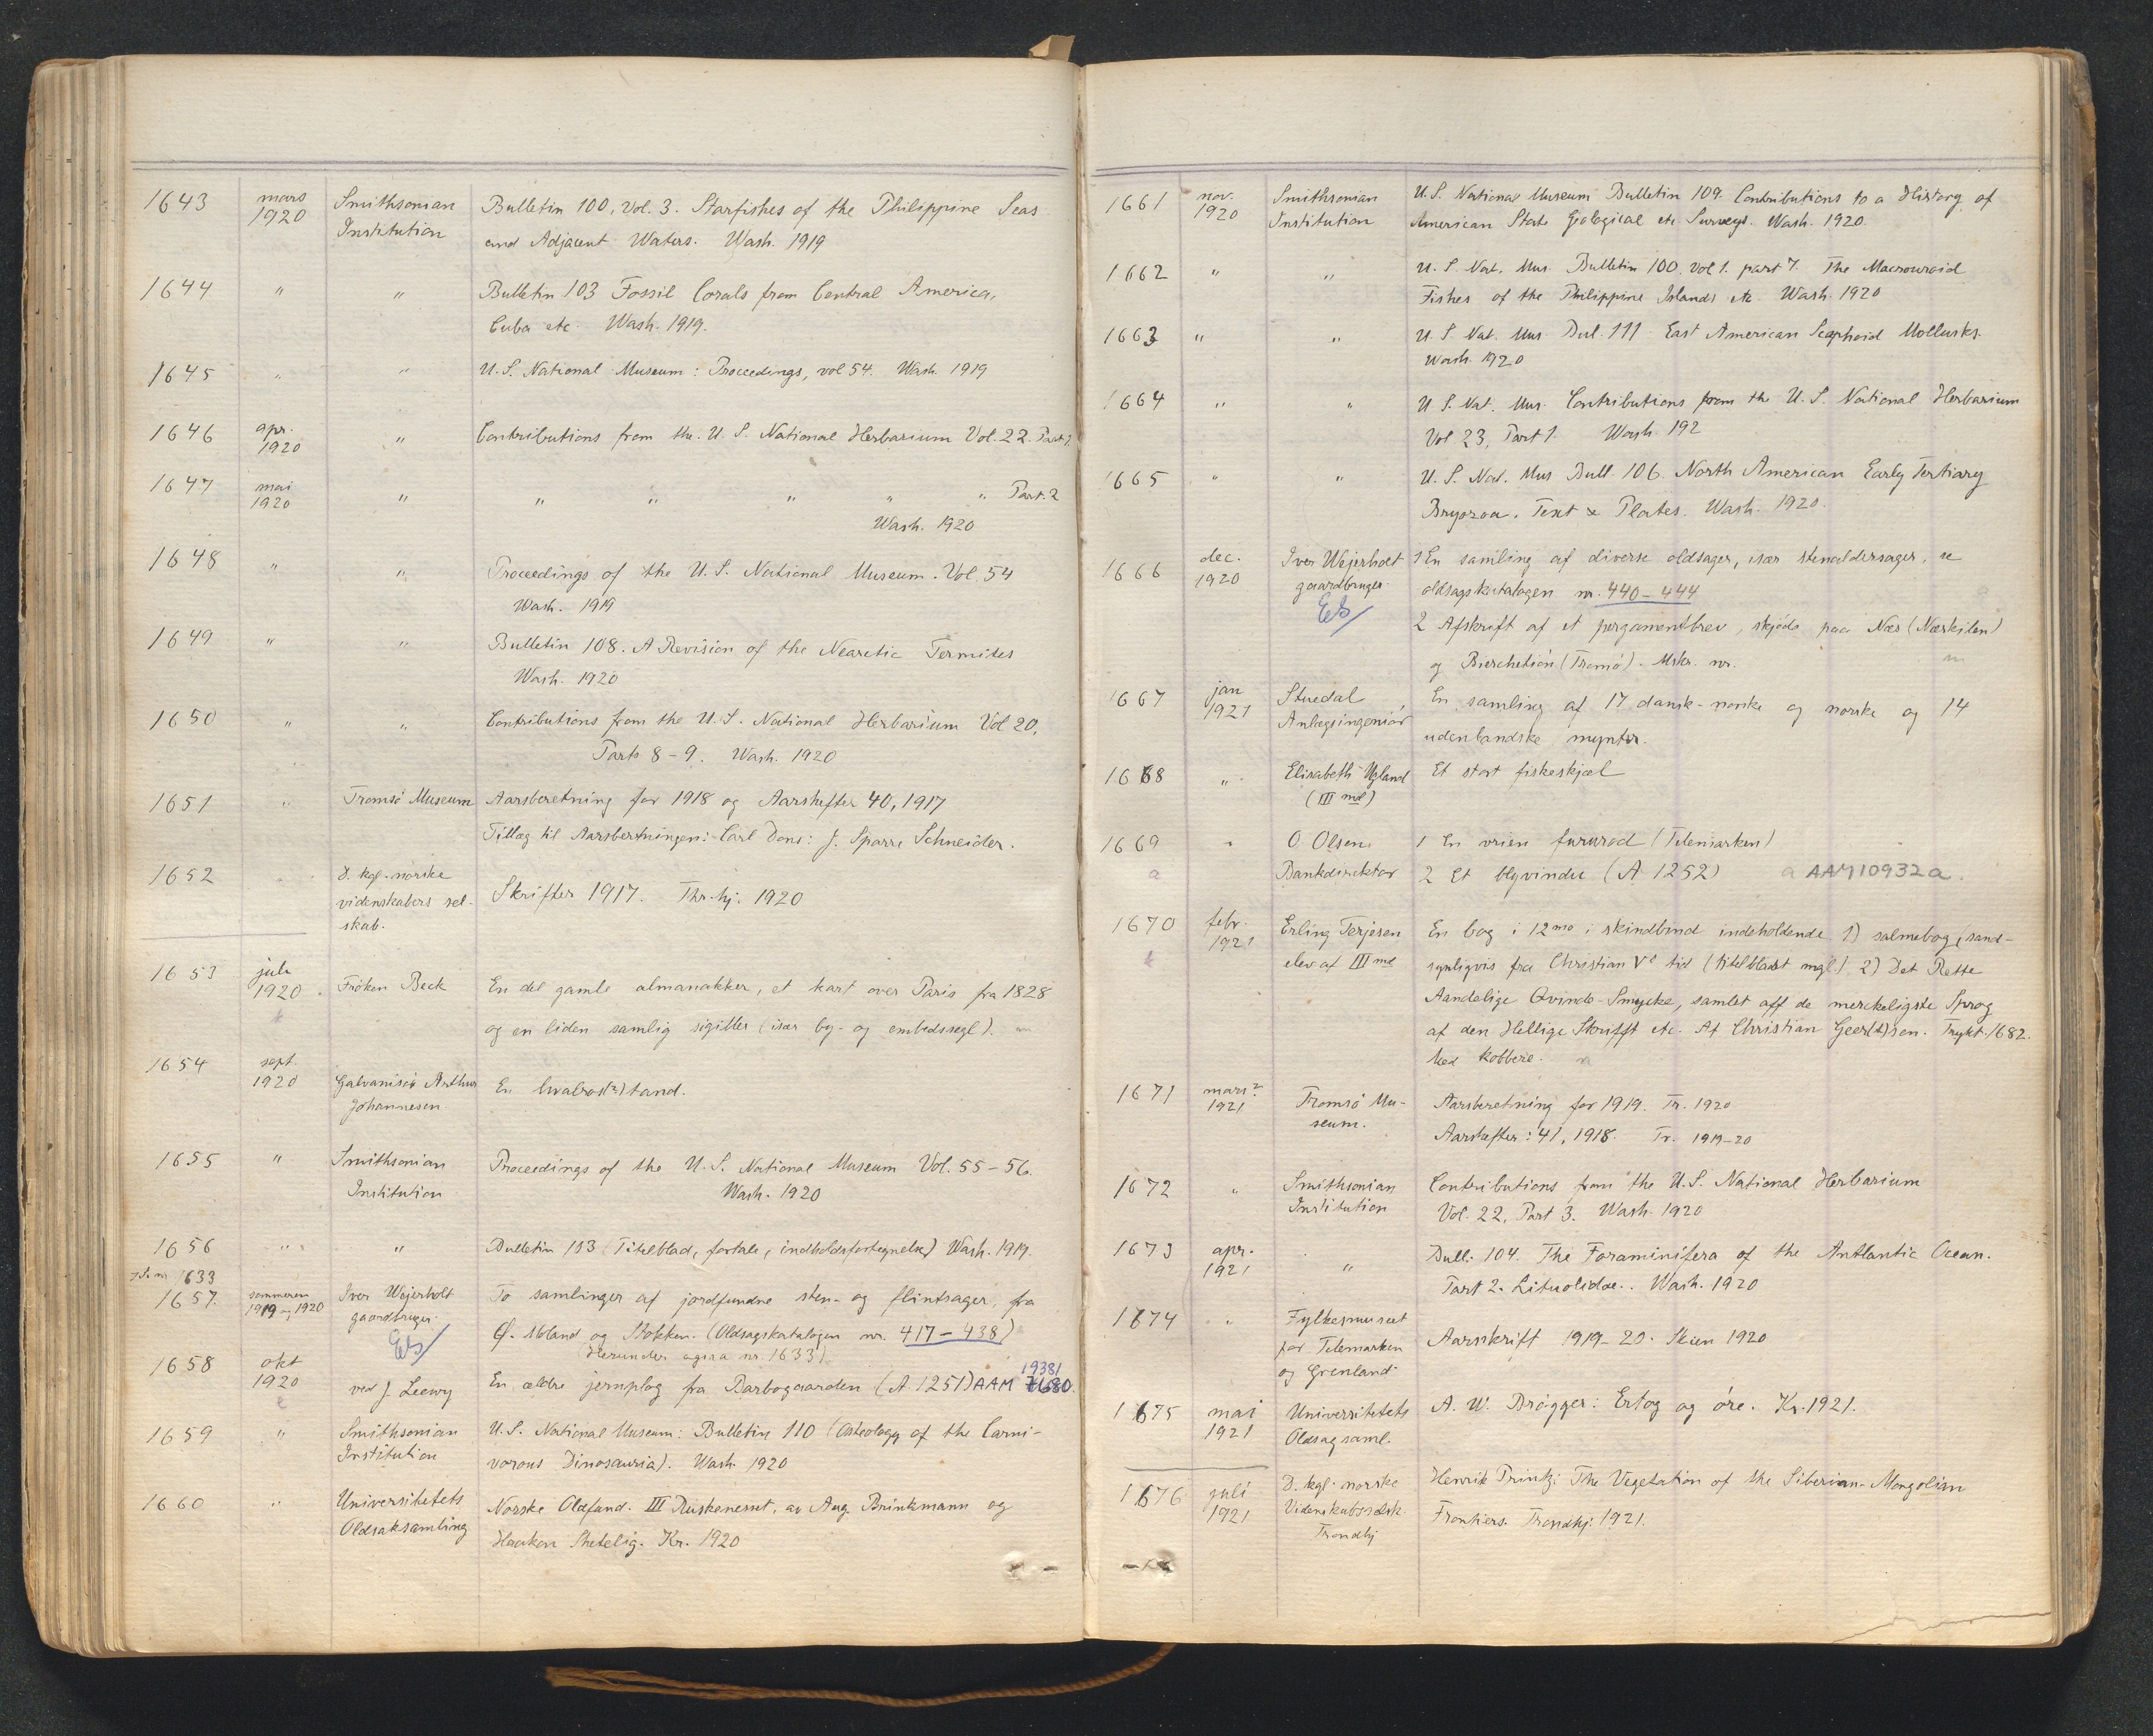 1643 mars 1920 Smithsonian Institution Bulletin 100, Vol. 3. Starfishes of the Philippine Seas
and Adjacent Waters. Wash. 1919
1644 " " Bulletin 103 Fossil Corals from Central America,
Cuba etc. Wash. 1919.
1645 " " U.S. National Museum: Proceedings, vol 54. Wash. 1919
1646 apr. 1920 " Contributions from the U.S. National Herbarium Vol. 22. Part 1
1647 mai 1920 " " " " " " Part. 2
Wash. 1920
1648 " " Proceedings of the U.S. National Museum. Vol. 54
Wash. 1919
1649 " " Bulletin 108. A Revision of the Nearctic Termites
Wash. 1920
1650 " " Contributions from the U.S. National Herbarium Vol 20,
Parts 8-9. Wash. 1920
1651 " Tromsö Museum Aarsberetning for 1918 og Aarshefter 40, 1917
Tillæg til Aarsbertningen: Carl Dons: J. Sparre Schneider.
1652 " D. kgl. norske
videnskabers sel-
skab.
Skrifter 1917. Thr.hj. 1920
1653 juli 1920 Fröken Beck En del gamle almanakker, et kart over Paris fra 1828
og en liden samlig sigiller (især by- og embedssegl).
1654 sept. 1920 Galvanisör Arthur
Johannesen
En hvalros(?)tand.
1655 " Smithsonian
Institution
Proceedings of the U.S. National Museum Vol. 55-56.
Wash. 1920
1656 " " Bulletin 103 (Titelblad, fortale, indholdsfortegnelse) Wash. 1919.
nr 1633
1657. sommeren 1919 og 1920 Iver Wejerholt
gaardbruger.
To samlinger af jordfundne sten- og flintsager, fra
Ø. Åbland og Stokken. (Oldsagskatalogen nr. 417-438)
(Herunder ogsaa nr. 1633).
1658 okt 1920 ved J. Leewy En ældre jernplog fra Barbogaarden (A. 1251) AAM 7680
19381
1659 " Smithsonian
Institution
U.S. National Museum: Bulletin 110 (Osteology of the Carni-
vorous Dinosauria). Wash 1920
1660 " Universitetets
Oldsaksamling
Norske Oldfund. III Ruskenesset, av Aug. Brinkmann og
Haakon Shetelig. Kr. 1920
1661 nov. 1920 Smithsonian
Institution
U.S. National Museum Bulletin 109. Contributions to a History of
American State Geological etc Surveys. Wash. 1920.
1662 " " U.S. Nat. Mus. Bulletin 100, vol 1. part 7. The Macrouroid
Fishes of the Philippine Islands etc. Wash. 1920
1663 " " U.S. Nat. Mus Bul. 111 East American Scaphoid Mollusks.
Wash. 1920
1664 " " U S. Nat. Mus. Contributions from the U.S. National Herbarium
Vol 23, Part 1. Wash. 192
1665 " " U.S. Nat. Mus Bull. 106. North American Early Tertiary
Bryozoa. Text & Plates. Wash. 1920.
1666 dec. 1920 Iver Wejerholt
gaardbruger.
1 En samling af diverse oldsager, især stenaldersager, se
oldsagskatalogen nr. 440-444
2 Afskrift af et pergamentbrev, skjøde paa Næs (Næskilen)
og Bierchetión (Tromö). Mskr. nr.
1667 jan 1921 Stuedal
Anlægsingeniör
En samling af 17 dansk-norske og norske og 14
udenlandske mynter.
1668 " Elisabeth Ugland
(III md)
Et stort fiskeskjæl
1669 " O. Olsen
Bankdirektör
1 En vrien fururod (Telemarken)
a 2 Et blyvindu (A 1252) a AAM 10932a.
1670 febr. 1921 Erling Terjesen
elev af III md
En bog i 12mo i skindbind indeholdende 1) salmebog (sand-
synligvis fra Christian Ve tid (titelbladet mgl.) 2) Det Rette
Aandelige Qvinde-Smycke, samlet aff de merckeligste Sprog
af den Hellige Skrifft etc. Af Christian Geer(t)sen. Trykt. 1682.
Med kobbere.
1671 mars? 1921 Tromsö Mu-
seum.
Aarsberetning for 1919. Tr. 1920
Aarshefter: 41, 1918. Tr. 1919-20
1672 " Smithsonian
Institution
Contributions from the U.S. National Herbarium
Vol. 22, Part 3. Wash. 1920
1673 apr. 1921 " Bull. 104. The Foraminifera of the Antlantic Ocean.
Part 2. Lituolidae. Wash. 1920
1674 " Fylkesmuseet
for Telemarken
og Grenland
Aarsskrift 1919-20. Skien 1920
1675 mai 1921 Universitetets
Oldsagsaml.
A. W. Brøgger: Ertog og öre. Kr. 1921.
1676 juli 1921 D. kgl. norske
Videnskabsselsk.
Trondhj
Henrik Printz: The Vegetation of the Siberian-Mongolian
Frontiers. Trondhj. 1921.